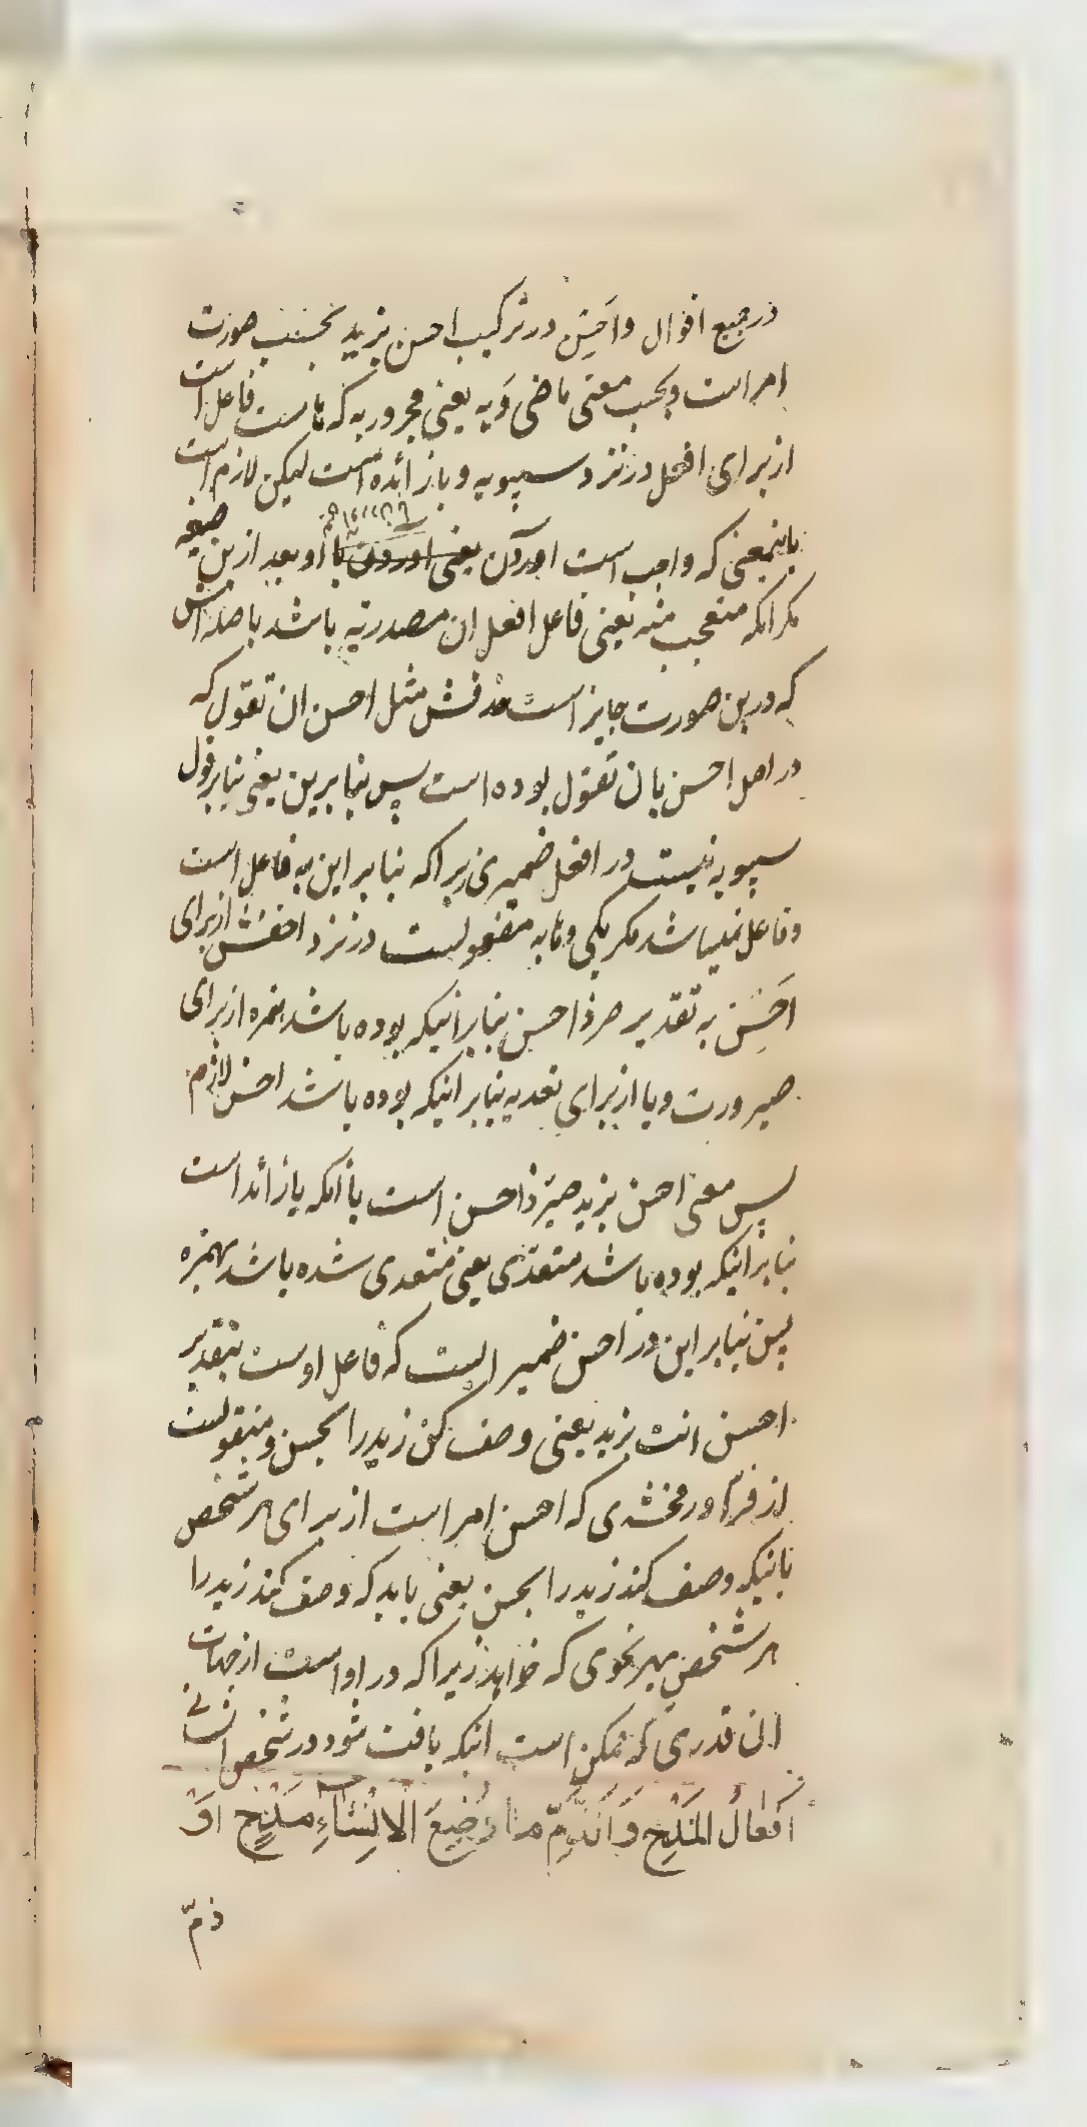 در جمیع اقوال واَحسِن در ترکیب احسن بزید بحسب صورت
امر است وبحسب معنی ماضی وَبِه یعنی مجرور به که ماست فاعل است
از برای افعل در نزد سیبویه وبا زائده است لیکن لازم است
باینمعنی که واجب است اوردن یعنی اوردن با او بعد ازین صیغه
مکر انکه متعجب منه یعنی فاعل افعل ان مصدریه باشد با صله اش
که درین صورت جایز است حذفش مثل احسن ان تقول که
در اصل احسن بان تقول بوده است پس بنابرین یعنی بنابر قول
سیبویه نیست در افعل ضمیری زیراکه بنابر این به فاعل است
وفاعل نمیباشد مکر یکی وما به مفعولست در نزد اخفش از برای
اَحسِن به تقدیر صر ذا حسن بنابر اینکه بوده باشد همزه از برای
صیرورت وبا از برای تعدیه بنابر اینکه بوده باشد احسن لازم
پس معنی احسن بزید صیر ذا حسن است یا انکه با زائد است
بنابر اینکه بوده باشد متعدّی یعنی متعدی شده باشد بهمزه
پس بنابر این در احسن ضمیر است که فاعل اوست بتقدیر
احسن انت بزید یعنی وصف کن زید را بحسن ومنقولست
از فرّا وزمخشری که احسن امر است از برای هر شخص
باینکه وصف کند زید را بحسن یعنی باید که وصف کند زید را
هر شخص بهر نحوی که خواهد زیراکه در او است از جهات
ان قدری که ممکن است اینکه یافت شود در شخص انسانی
اَفعالُ المَدْحِ وَالذَّمِّ ما وُضِعَ لِاِنْشاءِ مَدْحٍ اَوْ
ذمّ